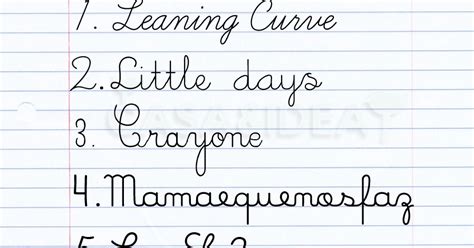 1. Leaning Curve
2. Little days
3. Crayone
4. Mamaequenosfaz
5.